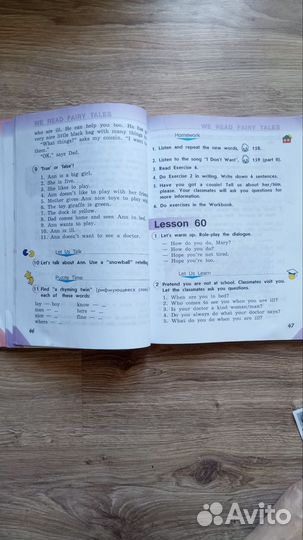 WE READ FAIRY TALES
who are ill. He can help you too. He has a
very nice little black bag with many things
"What things?" asks my cousin. "I want to
them."
"OK," says Dad.
9 'True' or 'False'?
1. Ann is a big girl.
2. She is five.
3. She likes to play.
4. Ann doesn't like to play with her friends.
5. Mother gives Ann nice toys to play with.
6. The toy giraffe is green.
7. The duck is yellow.
8. Dad comes home and sees Ann in bed.
9. Ann wants to play.
10. Ann is ill.
11. Ann doesn't want to see a doctor.
Let Us Talk
10 Let's talk about Ann. Use a "snowball" retelling.
Puzzle Time
11 Find "a rhyming twin" (рифмующееся слово)
each of these words:
toy — boy know —
man — here —
nice — fine —
where —
46
WE READ FAIRY TALES
Homework
1. Listen and repeat the new words, 138.
2. Listen to the song "I Don't Want", 139 (part II).
3. Read Exercise 4.
4. Do Exercise 2 in writing. Write down 4 sentences.
5. Have you got a cousin? Tell us about her/him,
please. Your classmates will ask you questions for
more information.
6. Do exercises in the Workbook.
Lesson 60
1 Let's warm up. Role-play the dialogue.
— How do you do, Mary?
— How do you do?
— Hope you're not tired.
— Hope you're too.
Let Us Learn
2 Pretend you are not at school. Classmates visit you.
Let the classmates ask you questions.
1. When are you in bed?
2. Who comes to see you when you are ill?
3. Is your doctor a kind woman/man?
4. Do you always do what your doctor says?
5. What do you do when you are ill?
47
Avito